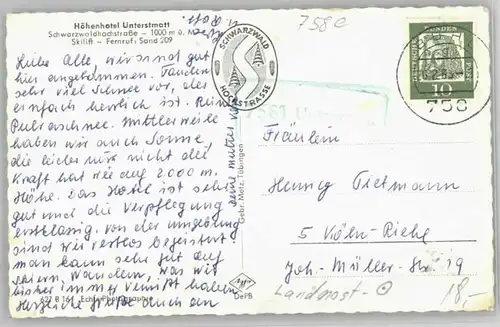 Höhenhotel Unterstmatt
Schwarzwaldhochstraße – 1000 m ü. M.
Skilift – Fernruf: Sand 209
Liebe Alle, wir sind gut
hier angekommen. Fanden
sehr viel Schnee vor, der
einfach herrlich ist. Rein
Pulverschnee. Mittlerweile
haben wir auch Sonne,
die leider nur nicht die
Kraft hat wie auf 2.000 m.
Höhe. Das Hotel ist sehr
gut und die Verpflegung
erstklassig, von der Umgebung
sind wir restlos begeistert.
man kann sehr gut auf
skiern, wandern, was wir
bisher immer vermißt haben.
Herzliche Grüße auch an
seine Mutter von
627 B 164 Echte Photographie
Gebr. Metz, Tübingen
Agfa
DePB
SCHWARZWALD
HOCHSTRASSE
758 C
7581
DEUTSCHE BUNDESPOST
10
758
Fräulein
Henny Tietmann
5 Köln-Riehl
Joh.-Müller-Str. 19
Landpost-
18,-